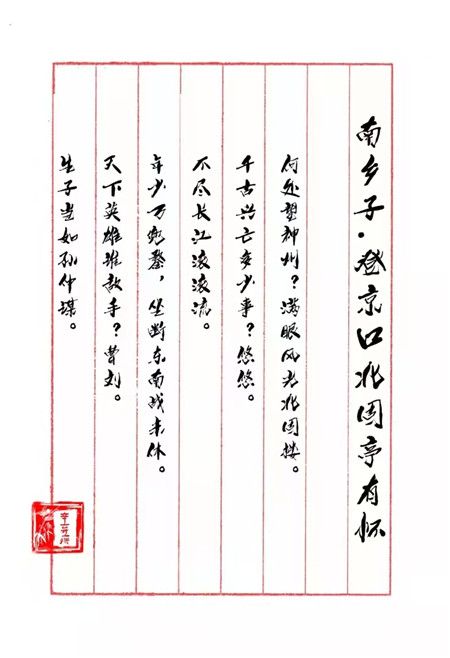 南乡子·登京口北固亭有怀
何处望神州？满眼风光北固楼。
千古兴亡多少事？悠悠。
不尽长江滚滚流。
年少万兜鍪，坐断东南战未休。
天下英雄谁敌手？曹刘。
生子当如孙仲谋。
辛弃疾